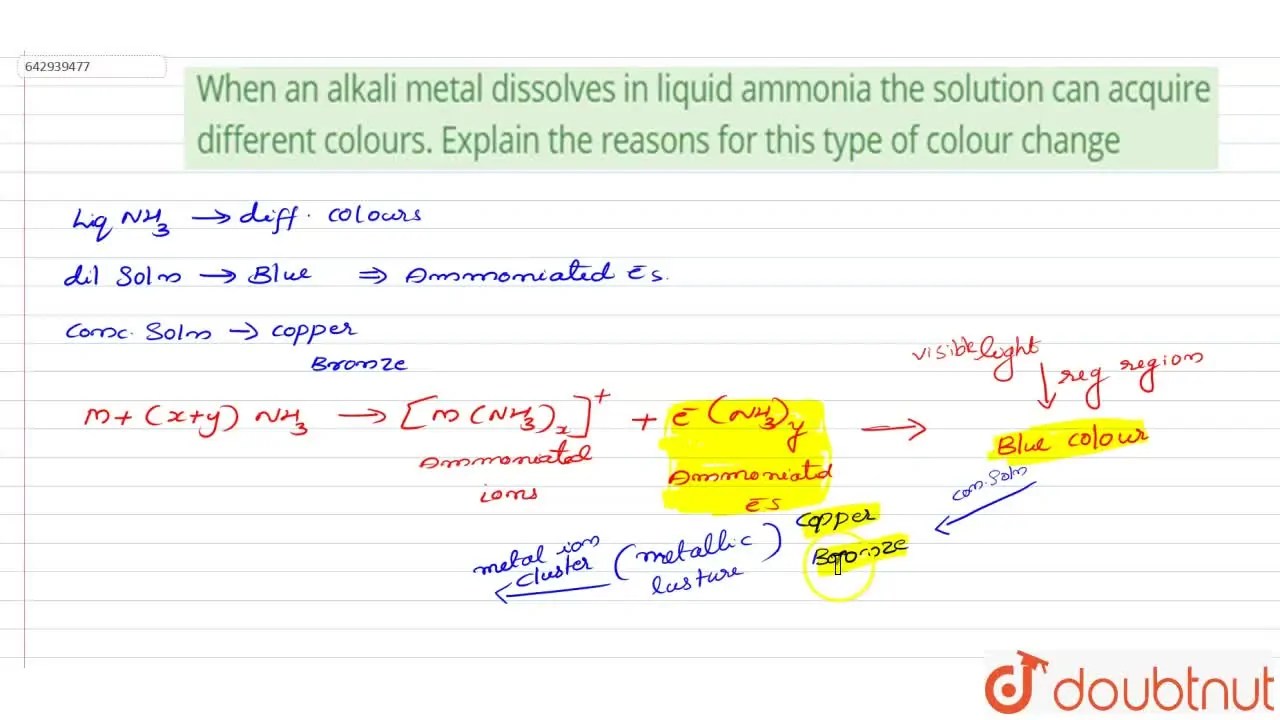 642939477
When an alkali metal dissolves in liquid ammonia the solution can acquire
different colours. Explain the reasons for this type of colour change
Liq NH3 → diff. colours
dil Soln → Blue ⇒ Ammoniated ēs.
Conc. Soln → copper
Bronze
visible light
reg region
M + (x+y) NH3 → [M(NH3)x]+ + ē(NH3)y →
Blue colour
Ammoniated
ions
Ammoniated
ēs
con. Soln
copper
Boronze
(metallic
lusture)
metal ion
cluster
doubtnut